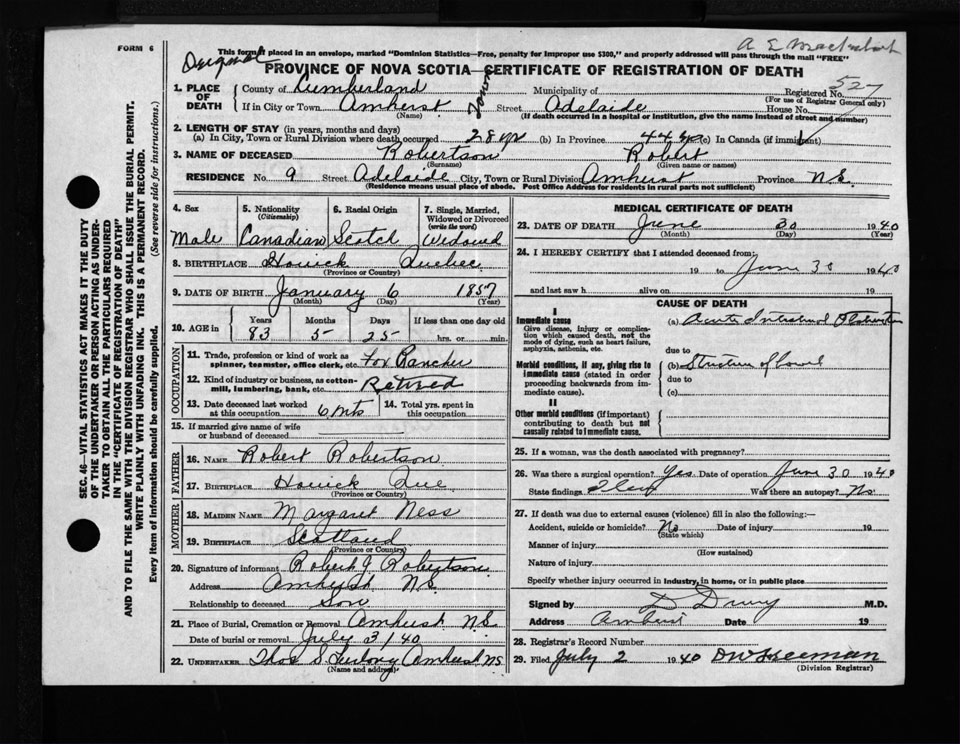 FORM 6
This form if placed in an envelope, marked "Dominion Statistics—Free, penalty for improper use $300," and properly addressed will pass through the mail "FREE"
Original
PROVINCE OF NOVA SCOTIA—CERTIFICATE OF REGISTRATION OF DEATH
527
1. PLACE OF DEATH
County of Cumberland Municipality of Registered No.
(For use of Registrar General only)
If in City or Town Amherst Town Street Adelaide House No.
(Name) (If death occurred in a hospital or institution, give the name instead of street and number)
2. LENGTH OF STAY (in years, months and days)
(a) In City, Town or Rural Division where death occurred 28 yrs (b) In Province 44 yrs (c) In Canada (if immigrant)
3. NAME OF DECEASED Robertson Robert
(Surname) (Given name or names)
RESIDENCE No. 9 Street Adelaide City, Town or Rural Division Amherst Province N.S.
(Residence means usual place of abode. Post Office Address for residents in rural parts not sufficient)
4. Sex 5. Nationality (Citizenship) 6. Racial Origin 7. Single, Married, Widowed or Divorced (write the word)
Male Canadian Scotch Widowed
8. BIRTHPLACE Howick Quebec
(Province or Country)
9. DATE OF BIRTH January 6 1857
(Month) (Day) (Year)
10. AGE in Years Months Days If less than one day old
83 5 25 hrs. or min.
OCCUPATION
11. Trade, profession or kind of work as spinner, teamster, office clerk, etc. Fox Rancher
12. Kind of industry or business, as cotton-mill, lumbering, bank, etc. Retired
13. Date deceased last worked at this occupation 6 mts 14. Total yrs. spent in this occupation
15. If married give name of wife or husband of deceased
FATHER
16. NAME Robert Robertson
17. BIRTHPLACE Howick Que
(Province or Country)
MOTHER
18. MAIDEN NAME Margaret Ness
19. BIRTHPLACE Scotland
(Province or Country)
20. Signature of informant Robert J Robertson
Address Amherst N.S.
Relationship to deceased Son
21. Place of Burial, Cremation or Removal Amherst N.S.
Date of burial or removal July 3/40
22. UNDERTAKER Thos S Furlong Amherst NS
(Name and address)
MEDICAL CERTIFICATE OF DEATH
23. DATE OF DEATH June 30 1940
(Month) (Day) (Year)
24. I HEREBY CERTIFY that I attended deceased from:
19 to June 30 1940
and last saw h alive on 19
CAUSE OF DEATH
I
Immediate cause
Give disease, injury or complication which caused death, not the mode of dying, such as heart failure, asphyxia, asthenia, etc.
(a) Acute Intestinal Obstruction
due to
Morbid conditions, if any, giving rise to immediate cause (stated in order proceeding backwards from immediate cause).
(b) Stricture of bowel
due to
(c)
II
Other morbid conditions (if important) contributing to death but not causally related to immediate cause.
25. If a woman, was the death associated with pregnancy?
26. Was there a surgical operation? Yes. Date of operation June 30 1940
State findings Was there an autopsy? No
27. If death was due to external causes (violence) fill in also the following:—
Accident, suicide or homicide? No Date of injury 19
(State which)
Manner of injury
(How sustained)
Nature of injury
Specify whether injury occurred in industry, in home, or in public place
Signed by D Drury M.D.
Address Amherst Date 19
28. Registrar's Record Number
29. Filed July 2 1940
(Division Registrar)
SEC. 46—VITAL STATISTICS ACT MAKES IT THE DUTY
OF THE UNDERTAKER OR PERSON ACTING AS UNDER-
TAKER TO OBTAIN ALL THE PARTICULARS REQUIRED
IN THE "CERTIFICATE OF REGISTRATION OF DEATH"
AND TO FILE THE SAME WITH THE DIVISION REGISTRAR WHO SHALL ISSUE THE BURIAL PERMIT.
WRITE PLAINLY WITH UNFADING INK. THIS IS A PERMANENT RECORD.
Every item of information should be carefully supplied. (See reverse side for instructions.)